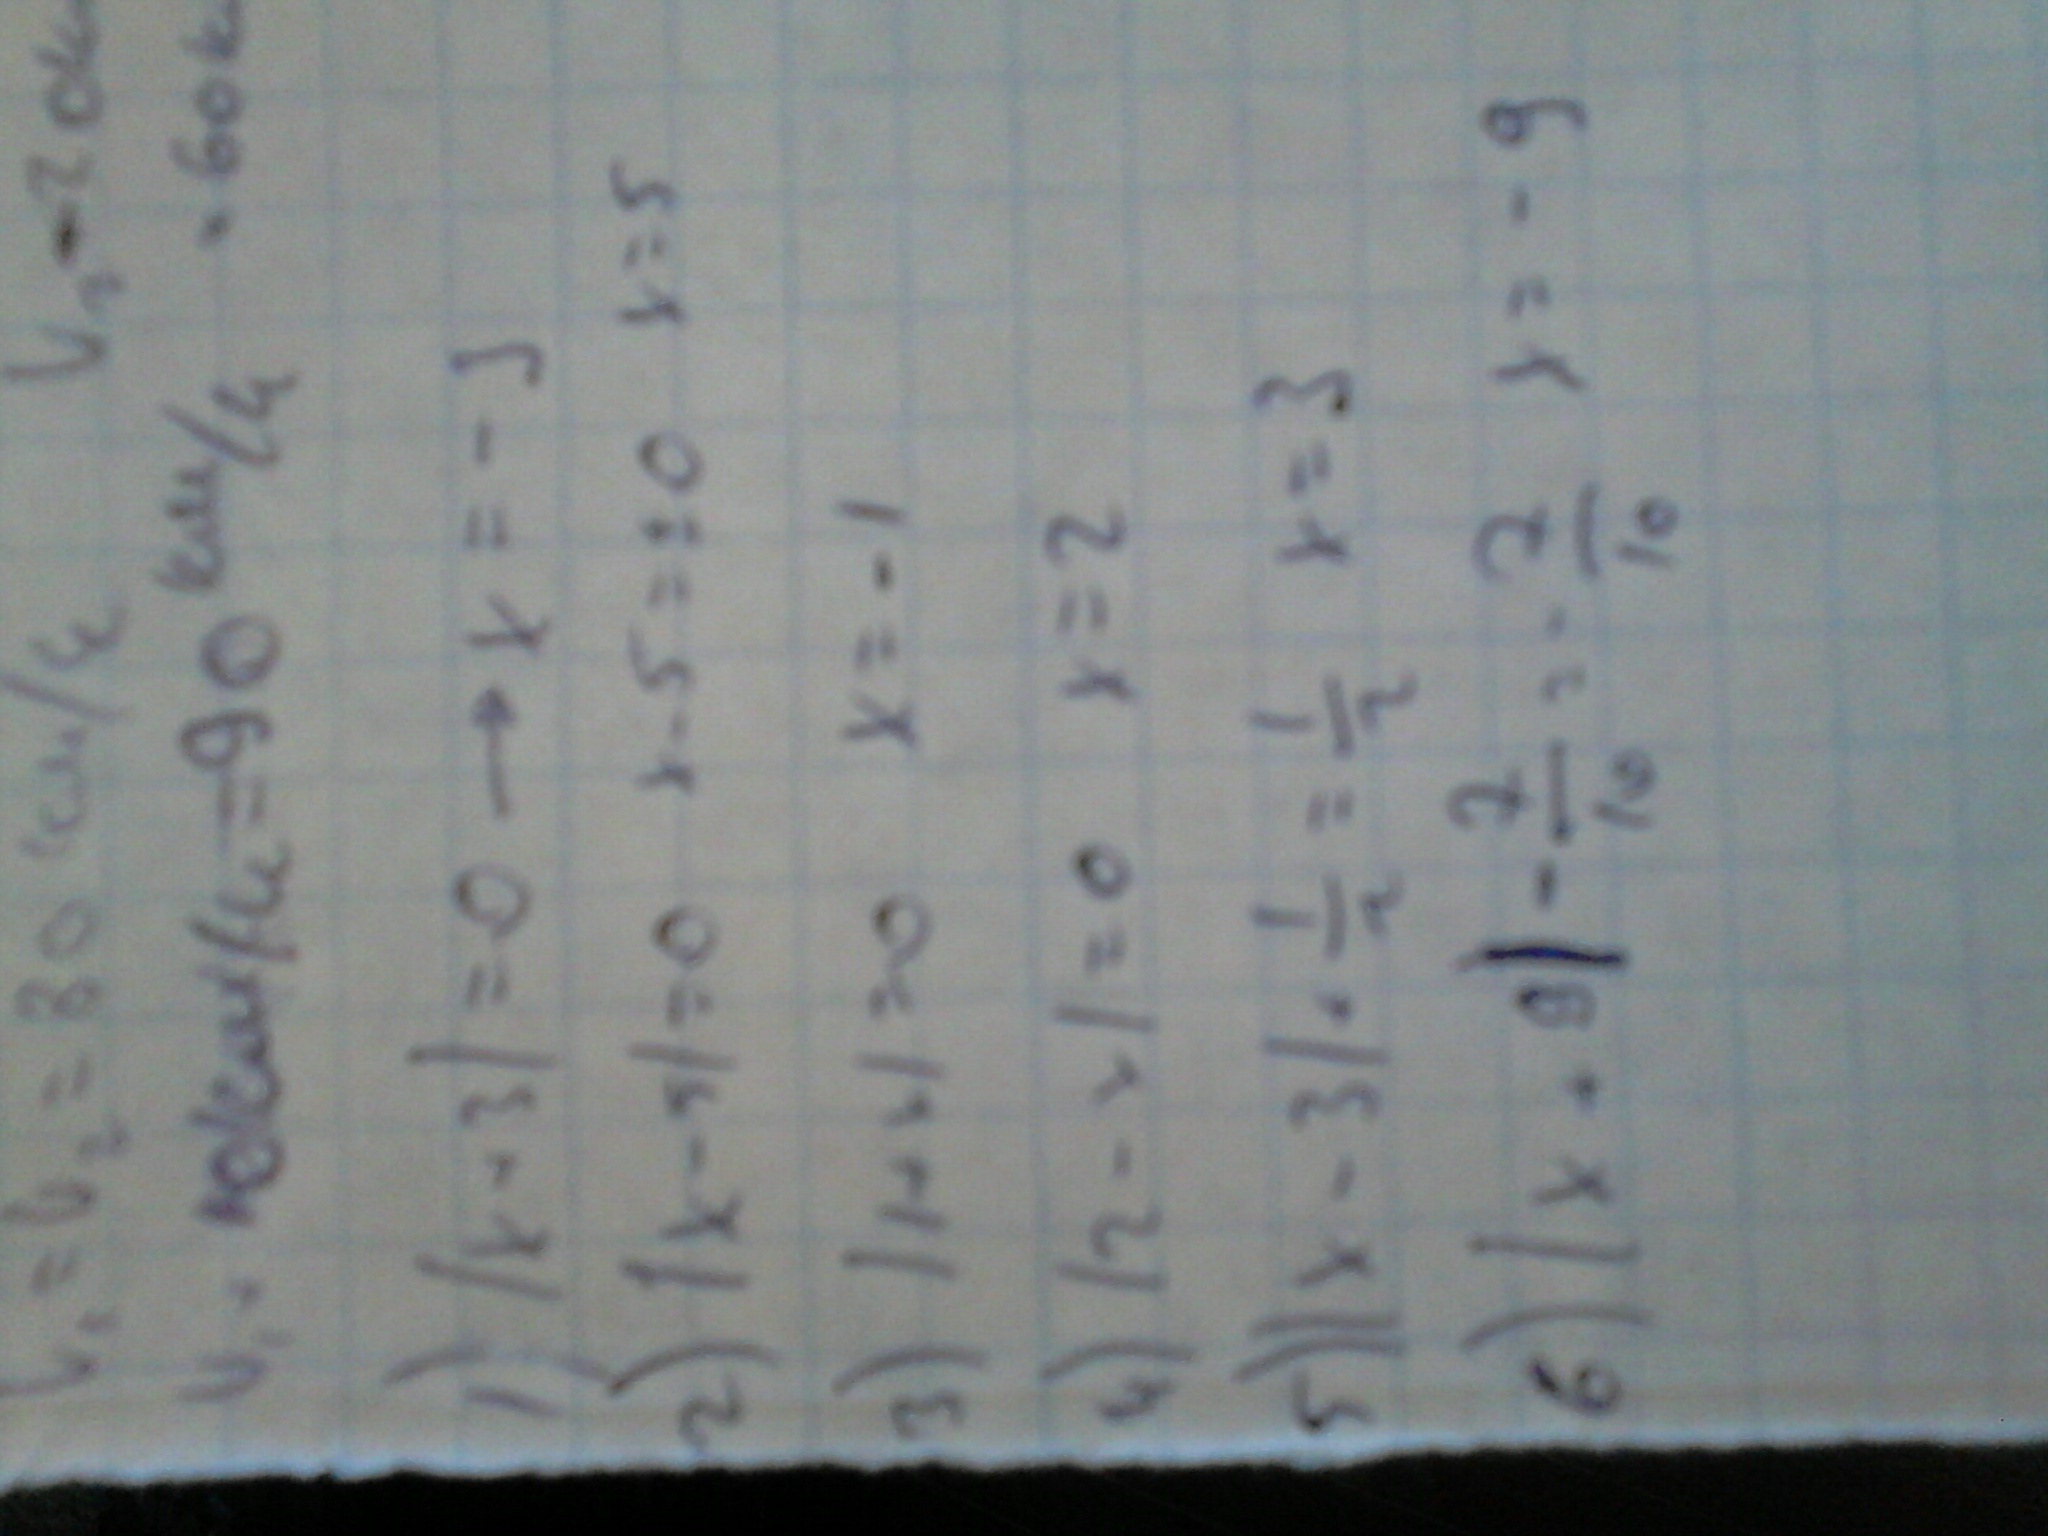 V₁ = V₂ = 30 км/ч V₂ - 20к
= 90 км/ч · 60к
1) |x + 3| = 0 → x = - 3
2) |x - 5| = 0 x - 5 = ± 0 x = 5
3) |1 + x| = 0 x = - 1
4) |2 - x| = 0 x = 2
5) |x - 3| + 1/2 = 1/2 x = 3
6) |x + 9| - 7/10 = - 7/10 x = - 9